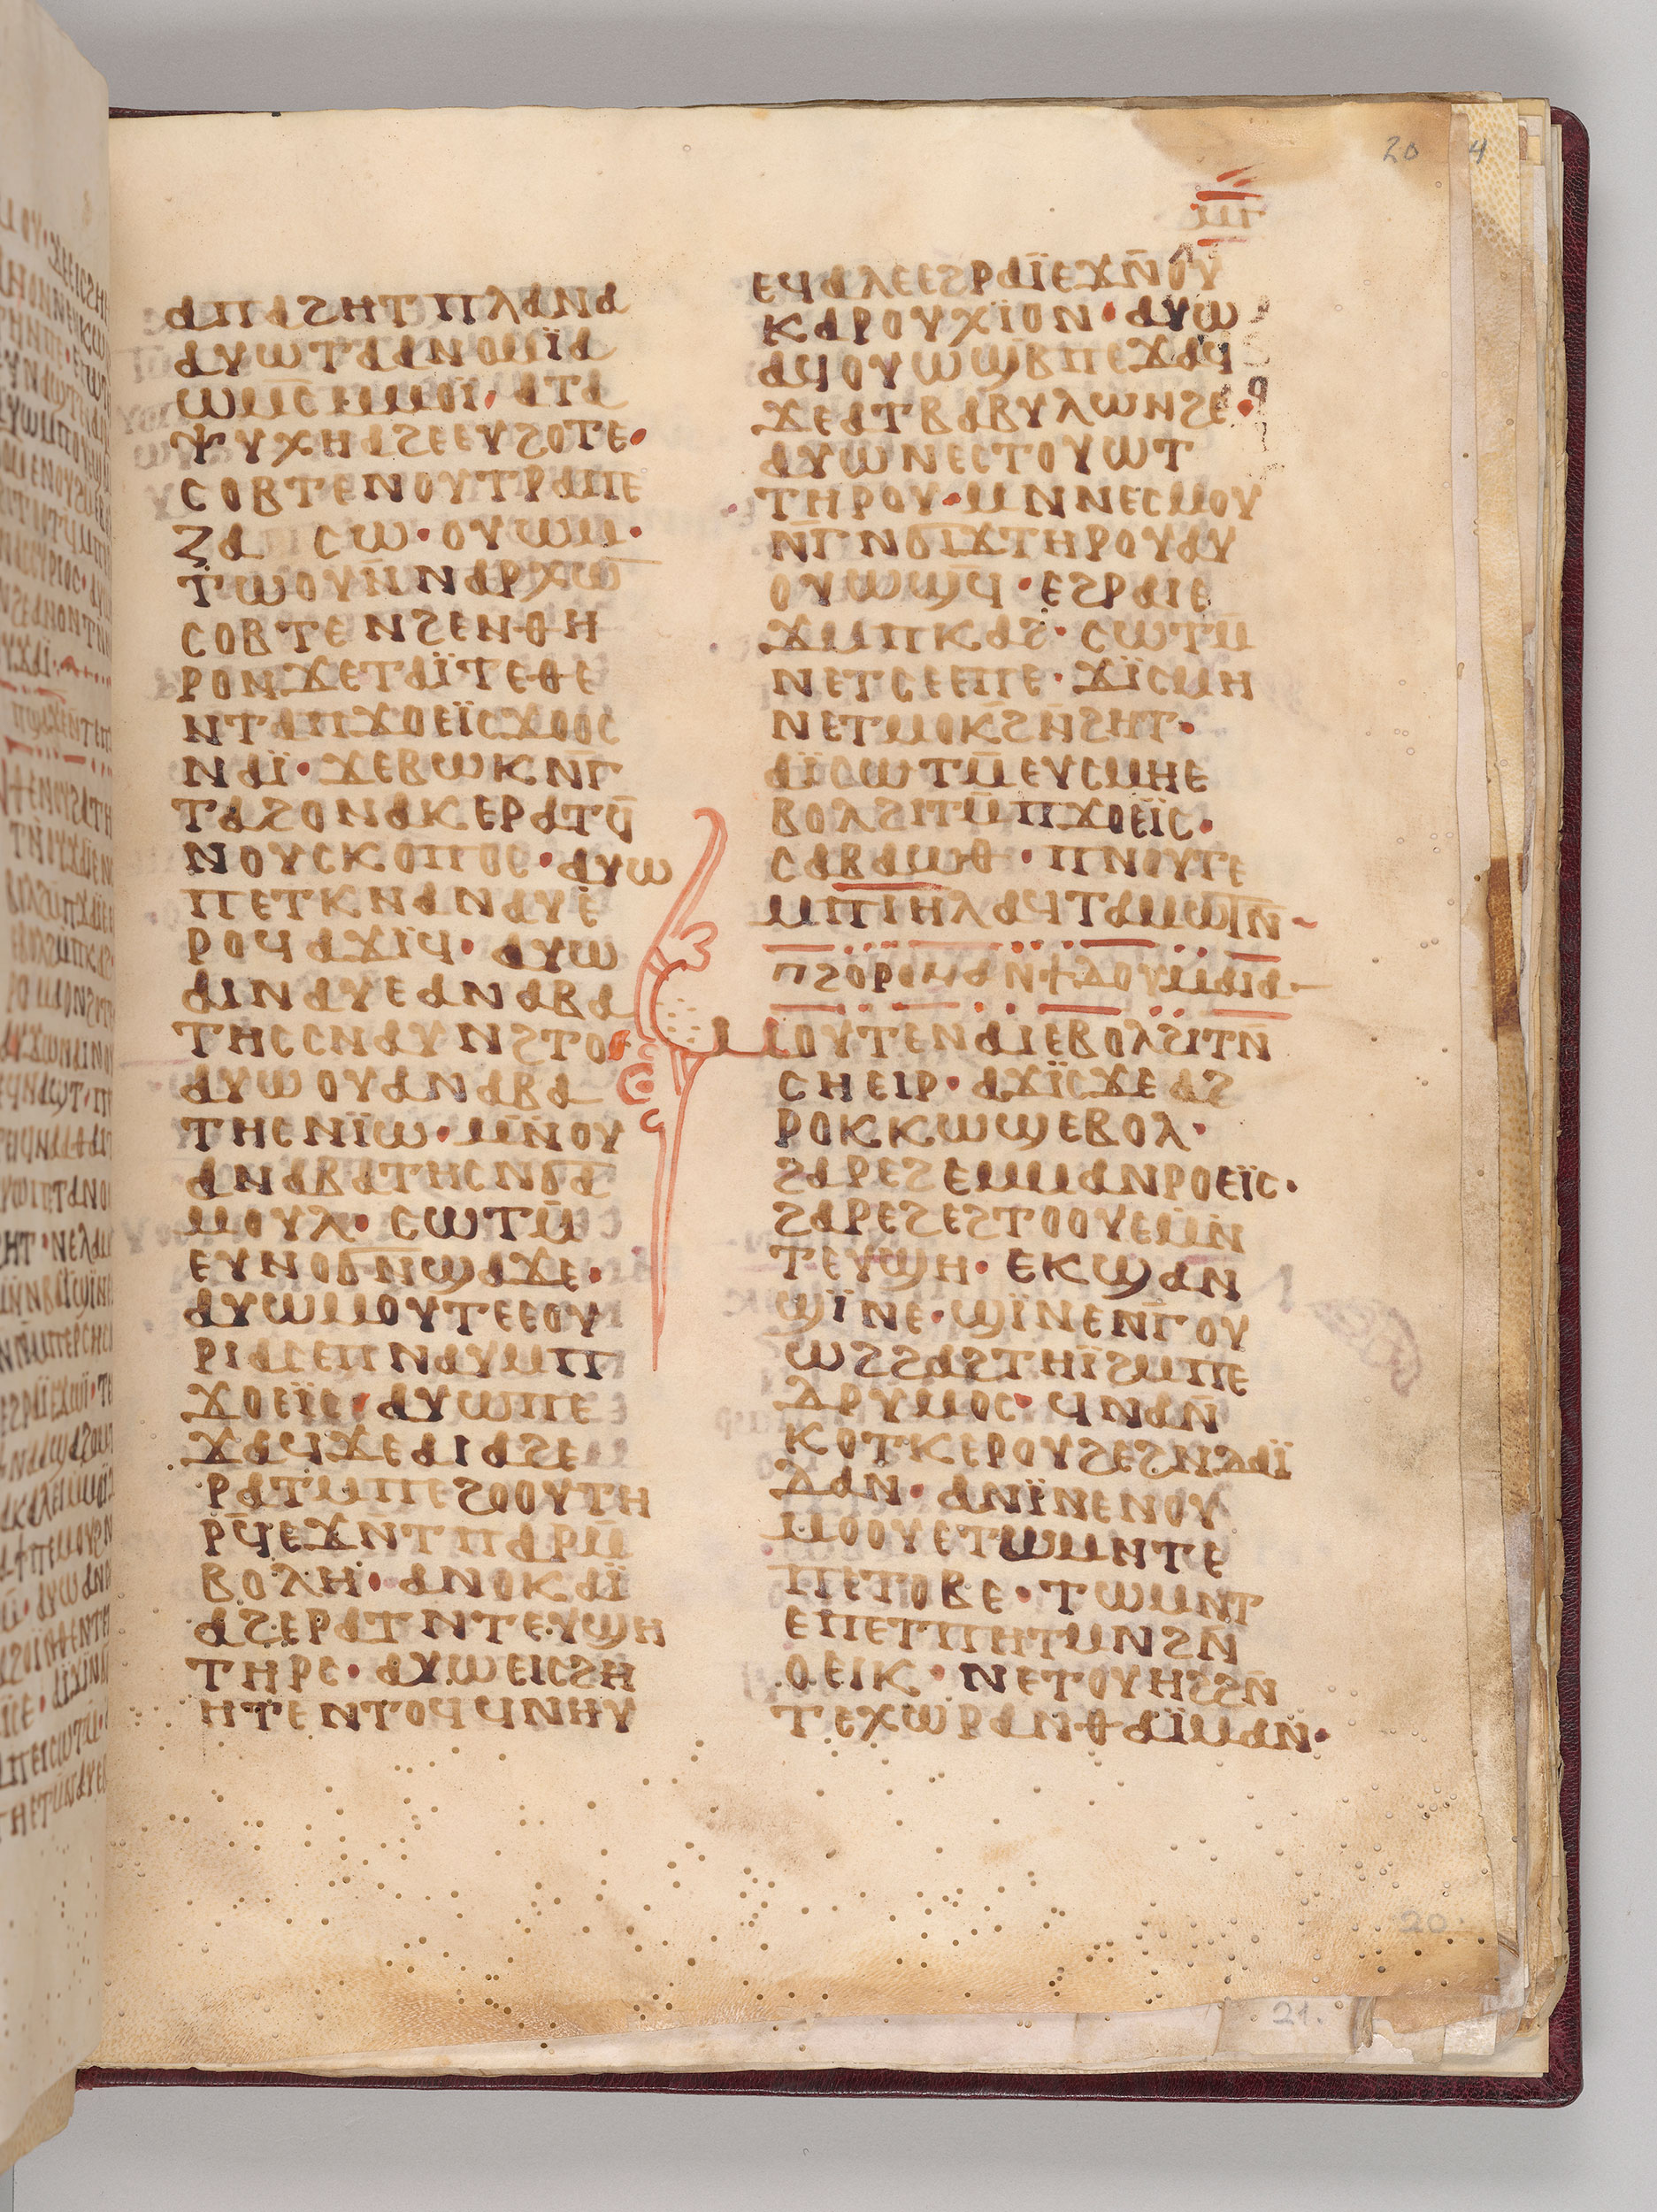 20 4
ⲙⲅ
ⲁⲡⲁϩⲏⲧⲡⲗⲁⲛⲁ
ⲁⲩⲱⲧⲁⲁⲛⲟⲙⲓ̈ⲁ
ⲱⲙ̅ⲥ̅ⲙ̅ⲙⲟⲓ̈· ⲁⲧⲁ
ⲯⲩⲭⲏⲁϩⲉⲉⲩϩⲟⲧⲉ·
ⲥⲟⲃⲧⲉⲛⲟⲩⲧⲣⲁⲡⲉ
ⲍⲁ ⲥⲱ· ⲟⲩⲱⲙ·
ⲧⲱⲟⲩⲛⲛⲁⲣⲭⲱ̅
ⲥⲟⲃⲧⲉⲛϩⲉⲛⲑⲏ
ⲣⲟⲛϫⲉⲧⲁⲓ̈ⲧⲉⲑⲉ
ⲛⲧⲁⲡϫⲟⲉⲓ̈ⲥϫⲟⲟⲥ
ⲛⲁⲓ̈· ϫⲉⲃⲱⲕⲛ̅ⲅ
ⲧⲁϩⲟⲛⲁⲕⲉⲣⲁⲧϥ̅
ⲛⲟⲩⲥⲕⲟⲡⲟⲥ· ⲁⲩⲱ
ⲡⲉⲧⲕⲛⲁⲛⲁⲩⲉ
ⲣⲟϥⲁϫⲓ̈ϥ· ⲁⲩⲱ
ⲁⲓⲛⲁⲩⲉⲁⲛⲁⲃⲁ
ⲧⲏⲥⲥⲛⲁⲩⲛϩⲧⲟ·
ⲁⲩⲱⲟⲩⲁⲛⲁⲃⲁ
ⲧⲏⲥⲛⲓ̈ⲱ· ⲙⲛ̅ⲟⲩ
ⲁⲛⲁⲃⲁⲧⲏⲥⲛϭⲁ
ⲙⲟⲩⲗ· ⲥⲱⲧⲙ̅
ⲉⲩⲛⲟϭⲛ̅ϣⲁϫⲉ·
ⲁⲩⲱⲙⲟⲩⲧⲉⲉⲟⲩ
ⲣⲓⲁⲥⲉⲡⲛⲁⲩⲙⲡ
ϫⲟⲉⲓ̈ⲥ· ⲁⲩⲱⲡⲉ
ϫⲁϥϫⲉⲁⲓⲁϩⲉ
ⲣⲁⲧⲙⲡⲉϩⲟⲟⲩⲧⲏ
ⲣϥ̅ⲉϫⲛ̅ⲧⲡⲁⲣⲙ̅
ⲃⲟⲗⲏ· ⲁⲛⲟⲕⲁⲓ̈
ⲁϩⲉⲣⲁⲧⲛⲧⲉⲩϣⲏ
ⲧⲏⲣⲥ· ⲁⲩⲱⲉⲓⲥϩⲏ
ⲏⲧⲉⲛⲧⲟϥϥⲛⲏⲩ
ⲉϥⲁⲗⲉⲉϩⲣⲁⲓ̈ⲉϫⲛ̅ⲟⲩ
ⲕⲁⲣⲟⲩⲭⲓ̈ⲟⲛ· ⲁⲩⲱ
ⲁϥⲟⲩⲱϣⲃⲡⲉϫⲁϥ
ϫⲉⲁⲧⲃⲁⲃⲩⲗⲱⲛϩⲉ·
ⲁⲩⲱⲛⲉⲥⲧⲟⲩⲱⲧ
ⲧⲏⲣⲟⲩ· ⲙⲛⲛⲉⲥⲙⲟⲩ
ⲛ̅ⲅⲛϭⲓϫⲧⲏⲣⲟⲩⲁⲩ
ⲟⲩⲱϣϥ̅· ⲉϩⲣⲁⲓⲉ
ϫⲙⲡⲕⲁϩ· ⲥⲱⲧⲙ̅
ⲛⲉⲧⲥⲉⲉⲡⲉ· ϫⲓ̈ⲥⲙⲏ
ⲛⲉⲧⲙⲟⲕϩⲛ̅ϩⲏⲧ·
ⲁⲓ̈ⲥⲱⲧⲙ̅ⲉⲩⲥⲙⲏⲉ
ⲃⲟⲗϩⲓⲧⲙ̅ⲡϫⲟⲉⲓ̈ⲥ·
ⲥⲁⲃⲁⲱⲑ· ⲡⲛⲟⲩⲧⲉ
ⲙⲡⲓⲏⲗⲁϥⲧⲁⲙⲱⲓⲛ̅
ⲡϩⲟⲣⲟⲙⲁⲛϯⲇⲟⲩⲙⲁⲓⲁ
ⲙⲟⲩⲧⲉⲛⲁⲓⲉⲃⲟⲗϩⲓⲧⲛ̅
ⲥⲏⲉⲓⲣ· ⲁϫⲓ̈ⲥϫⲉⲁϩ
ⲣⲟⲕⲕⲱϣⲉⲃⲟⲗ·
ϩⲁⲣⲉϩⲉⲙⲙⲁⲛⲣⲟⲉⲓ̈ⲥ·
ϩⲁⲣⲉϩⲉϩⲧⲟⲟⲩⲉⲙⲛ
ⲧⲉⲩϣⲏ· ⲉⲕϣⲁⲛ
ϣⲓ̈ⲛⲉ· ϣⲓ̈ⲛⲉⲛ̅ⲅⲟⲩ
ⲱϩϩⲁϩⲧⲏⲓ̈ϩⲙⲡⲉ
ⲇⲣⲩⲙⲟⲥ· ϥⲛⲁⲛ̅
ⲕⲟⲧⲕⲉⲣⲟⲩϩⲉϩⲛⲇⲁⲓ̈
ⲇⲁⲛ· ⲁⲛⲓ̈ⲛⲉⲛⲟⲩ
ⲙⲟⲟⲩⲉⲧⲱⲙⲛⲧⲉ
ⲡⲉⲧⲟⲃⲉ· ⲧⲱⲙⲛⲧ
ⲉⲡⲉⲧⲡⲏⲧⲙⲛϩⲛ̅
ⲟⲉⲓⲕ· ⲛⲉⲧⲟⲩⲏϩϩⲛ̅
ⲧⲉⲭⲱⲣⲁⲛⲑⲁⲓ̈ⲙⲁⲛ·
20
21.